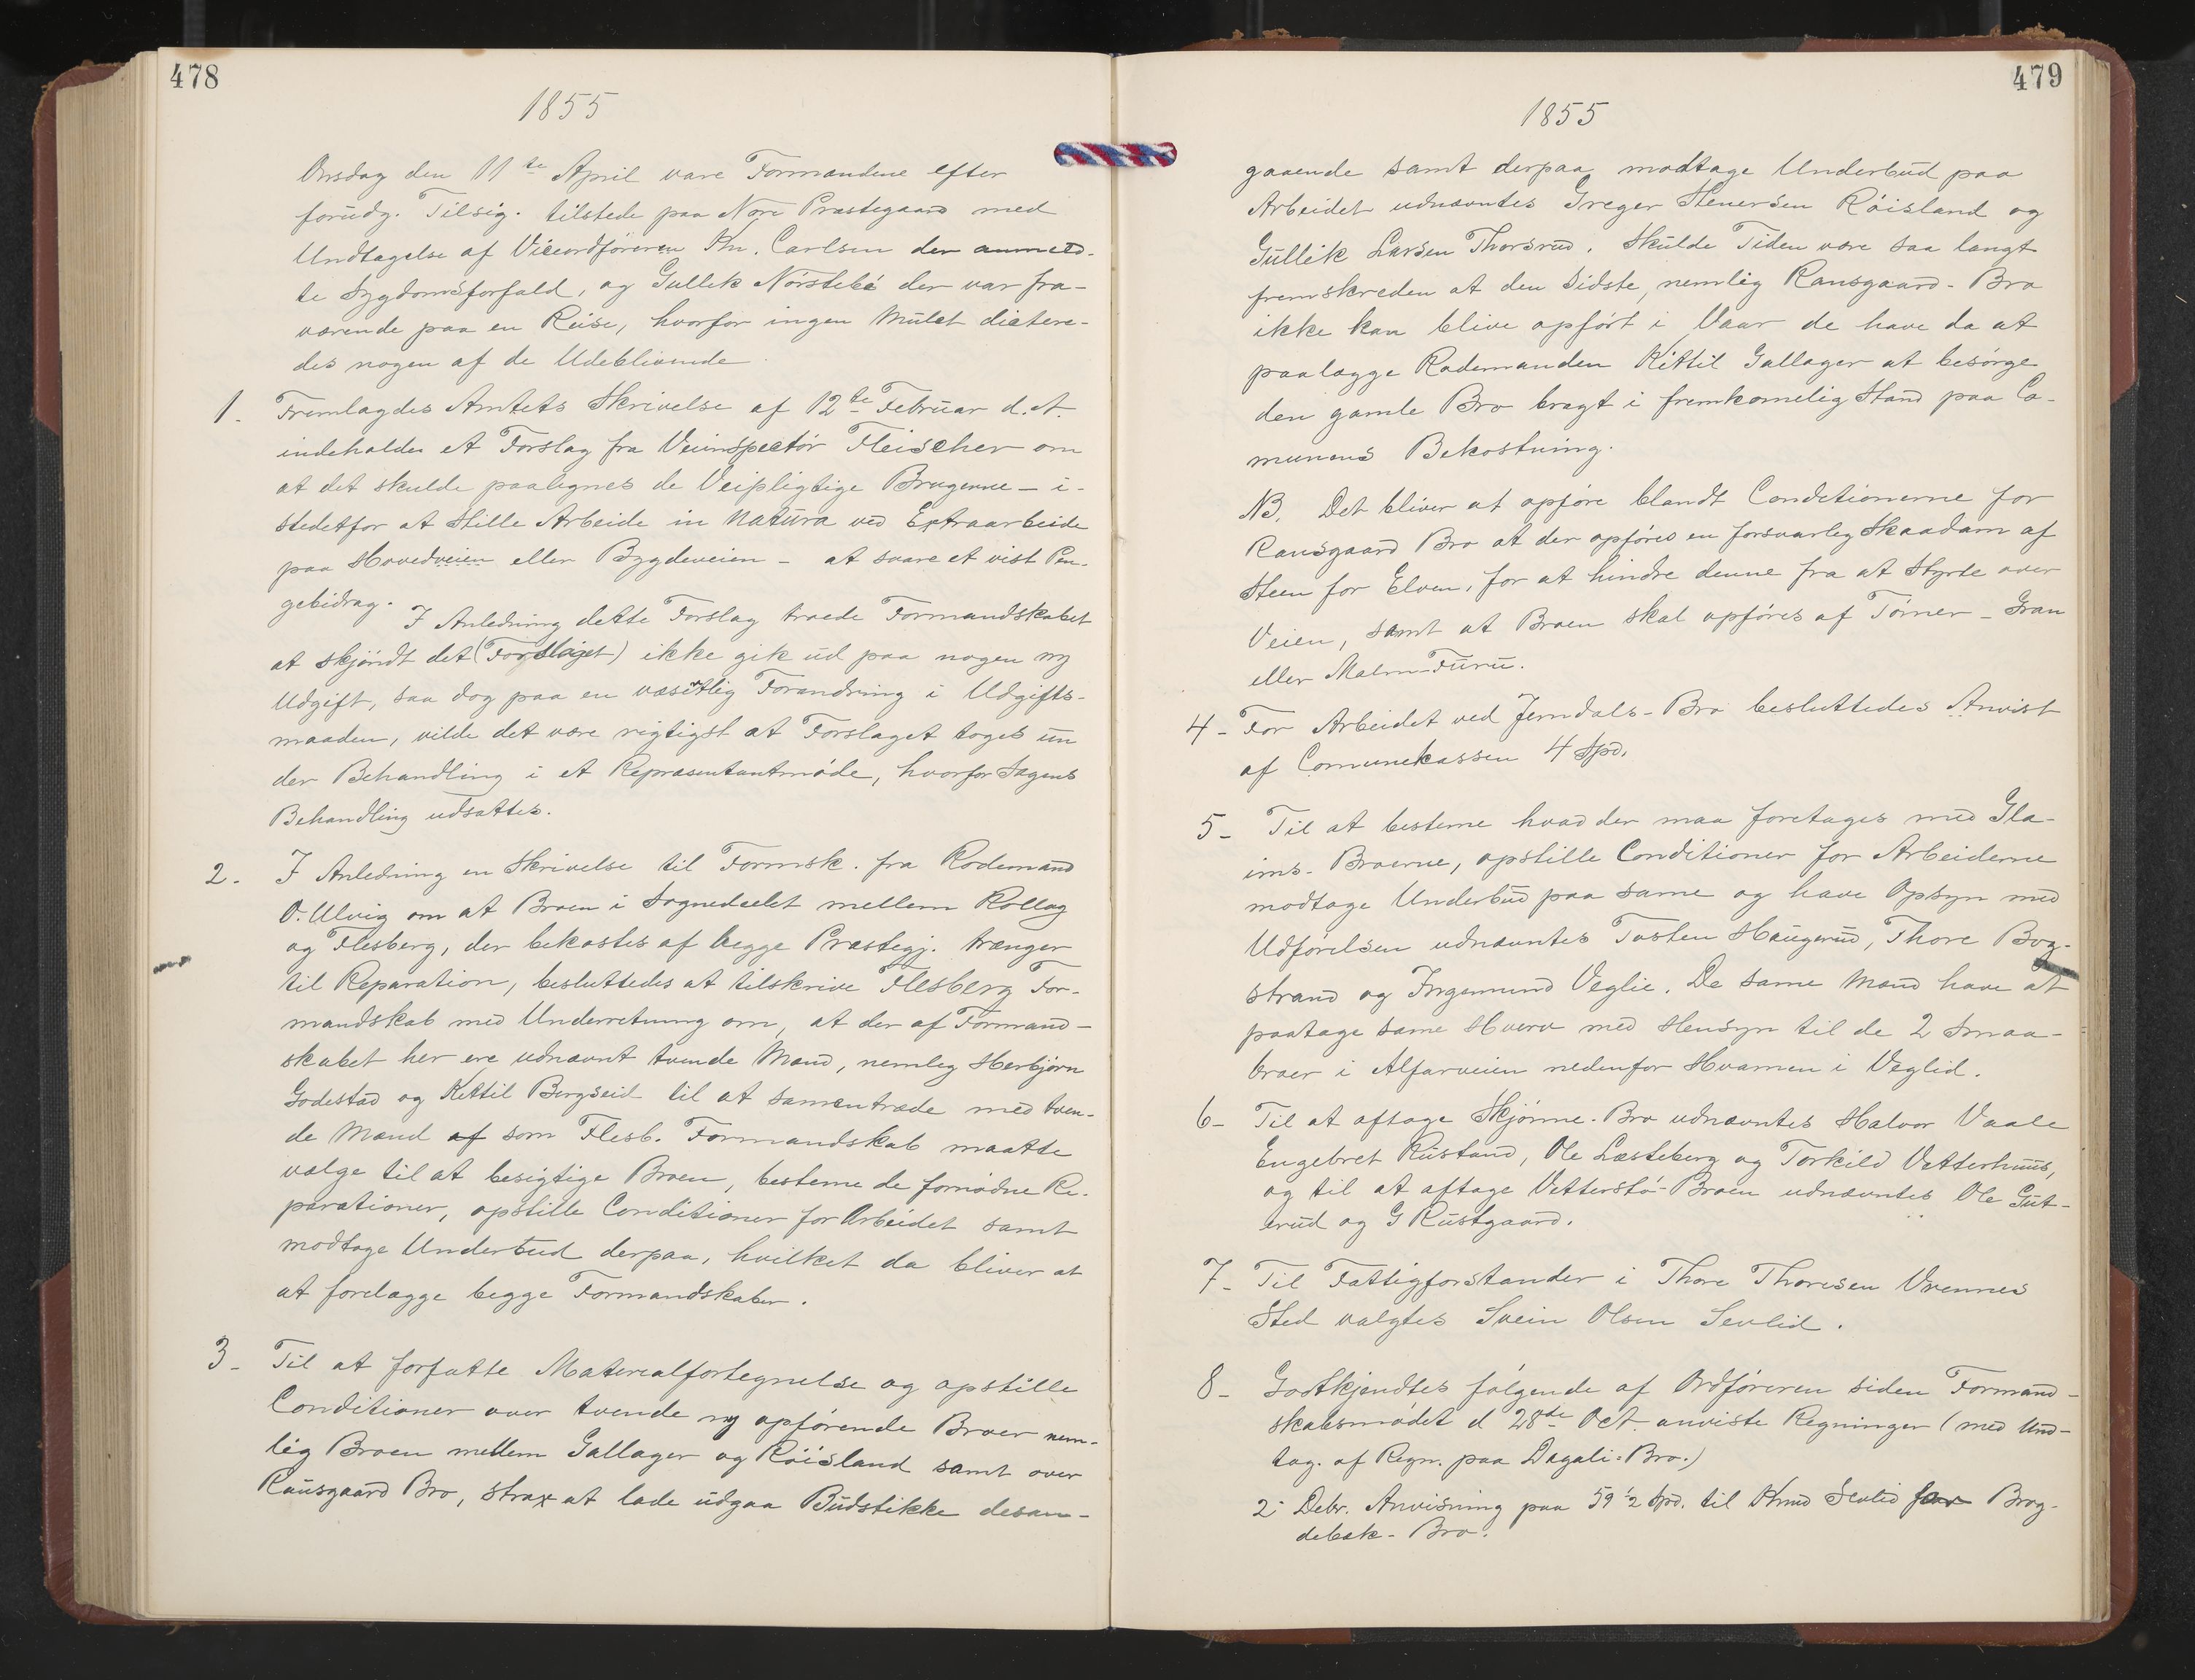 478
1855
Onsdag den 11te April vare Formændene efter
forudg. Tilsig. tilstede paa Nore Præstegaard med
Undtagelse af Viceordföreren Kn. Carlsen der anmeld-
te Sygdomsforfald, og Gullek Nörstebö der var fra-
værende paa en Reise, hvorfor ingen Mulct dictere-
des nogen af de Udeblivende.
1. Fremlagdes Amtets Skrivelse af 12te Februar d. A.
indeholder et Forslag fra Veiinspectör Fleischer om
at det skulde paalegnes de Veipligtige Brugerne – i-
stedetfor at stille Arbeide in natura ved Extraarbeide
paa Hovedveien eller Bygdeveien – at svare et vist Pen-
gebidrag. I Anledning dette Forslag troede Formandskabet
at skjöndt det (Forslaget) ikke gik ud paa nogen ny
Udgift, saa dog paa en væsentlig Forandring i Udgifts-
maaden, vilde det være rigtigst at Forslaget toges un
der Behandling i et Repræsentantmöde, hvorfor Sagens
Behandling udsattes.
2. I Anledning en Skrivelse til Formsk. fra Rodemand
O. Ulvig om at Broen i Sognedeelet mellem Rollag
og Flesberg, der bekostes af begge Præstegj. trænger
til Reparation, besluttedes at tilskrive Flesberg For-
mandskab med Underretning om, at der af Formand-
skabet her ere udnævnt tvende Mænd, nemleg Herbjörn
Godestad og Kettil Bergseid til at samentræde med tven-
de Mænd af som Flesb. Formandskab maatte
vælge til at besigtige Broen, besteme de fornödne Re-
parationer, opstille Conditioner for Arbeidet samt
modtage Underbud derpaa, hvilket da bliver at
at forelægge begge Formandskaber.
3- Til at forfatte Materialfortegnelse og opstille
Conditioner over tvende ny opförende Broer nem-
lig Broen mellem Gallager og Röisland samt over
Ransgaard Bro, strax at lade udgaa Budstikke desan-
479
1855
gaaende samt derpaa modtage Underbud paa
Arbeidet udnævntes Greger Stenersen Röisland og
Gullik Larsen Thorsrud. Skulde Tiden være saa langt
fremskreden at den sidste, nemlig Ransgaard-Bro
ikke kan blive opfört i Vaar de have da at
paalægge Rodemanden Kittil Gallager at besörge
den gamle Bro bragt i fremkomelig Stand paa Co-
munens Bekostning.
NB. Det bliver at opföre blandt Conditionerne for
Ransgaard Bro at der opföres en forsvarleg Skaadam af
Steen for Elven, for at hindre denne fra at styrte over
Veien, samt at Broen skal opföres af Törner – Gran
eller Malm-Furu.
4- For Arbeidet ved Jemdals-Bro besluttedes Anvist
af Comunekassen 4 Spd.
5- Til at besteme hvad der maa foretages med Gla-
ims-Broerne, opstille Conditioner for Arbeiderne
modtage Underbud paa same og have Opsyn med
Udförelsen udnævntes Tosten Haugerud, Thore Bog-
strand og Ingemund Veglie. De same Mænd have at
paatage same Hverv med Hensyn til de 2 Smaa-
broer i Alfarveien nedenfor Hvamen i Veglid.
6- Til at aftage Skjönne-Bro udnævntes Halvor Vaale
Engebret Rustand, Ole Læsteberg og Torkild Vetterhuus,
og til at aftage Vetterstö-Broen udnævntes Ole Gut-
erud og G Rustgaard.
7- Til Fattigforstander i Thore Thoresen Vrennes
Sted valgtes Svein Olsen Sevlid.
8- Godtkjendtes fölgende af Ordföreren siden Formand-
skabsmödet d 28de Oct. anviste Regninger (med Und-
tag. af Regn. paa Dagali-Bro.)
2- Debr. Anvisning paa 59 1/2 Spd. til Knud Sevlid for Brog-
debæk-Bro.